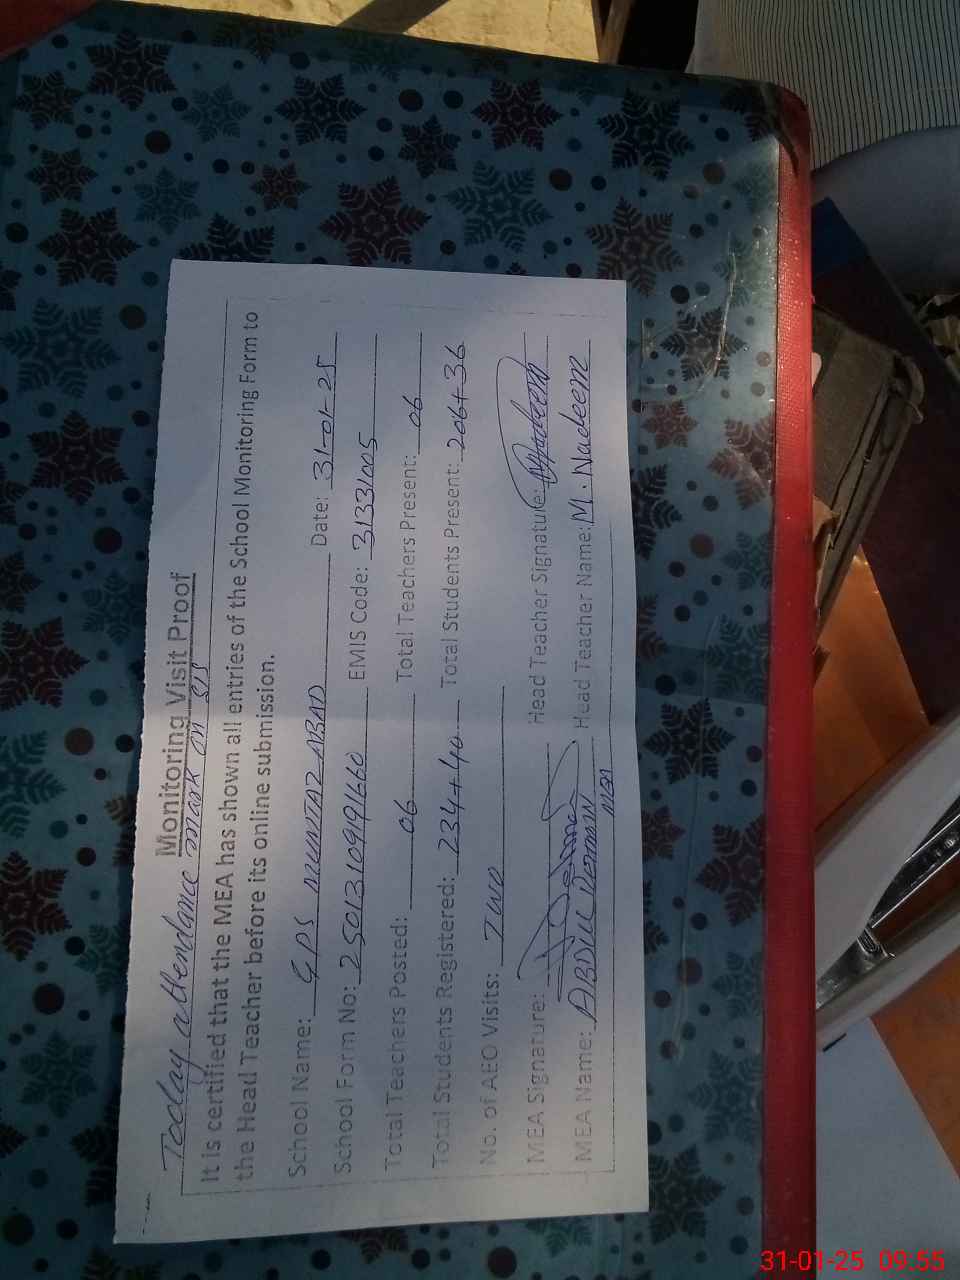 Monitoring Visit Proof
Today attendance mark on SIS
It is certified that the MEA has shown all entries of the School Monitoring Form to
the Head Teacher before its online submission.
School Name: GPS MUMTAZ ABAD Date: 31-01-25
School Form No: 25013109191660 EMIS Code: 31331005
Total Teachers Posted: 06 Total Teachers Present: 06
Total Students Registered: 234+40 Total Students Present: 206+36
No. of AEO Visits: Two
MEA Signature: Head Teacher Signature: MNadeem
MEA Name: ABDUL REHMAN Head Teacher Name: M. Nadeem
MEA
31-01-25 09:55